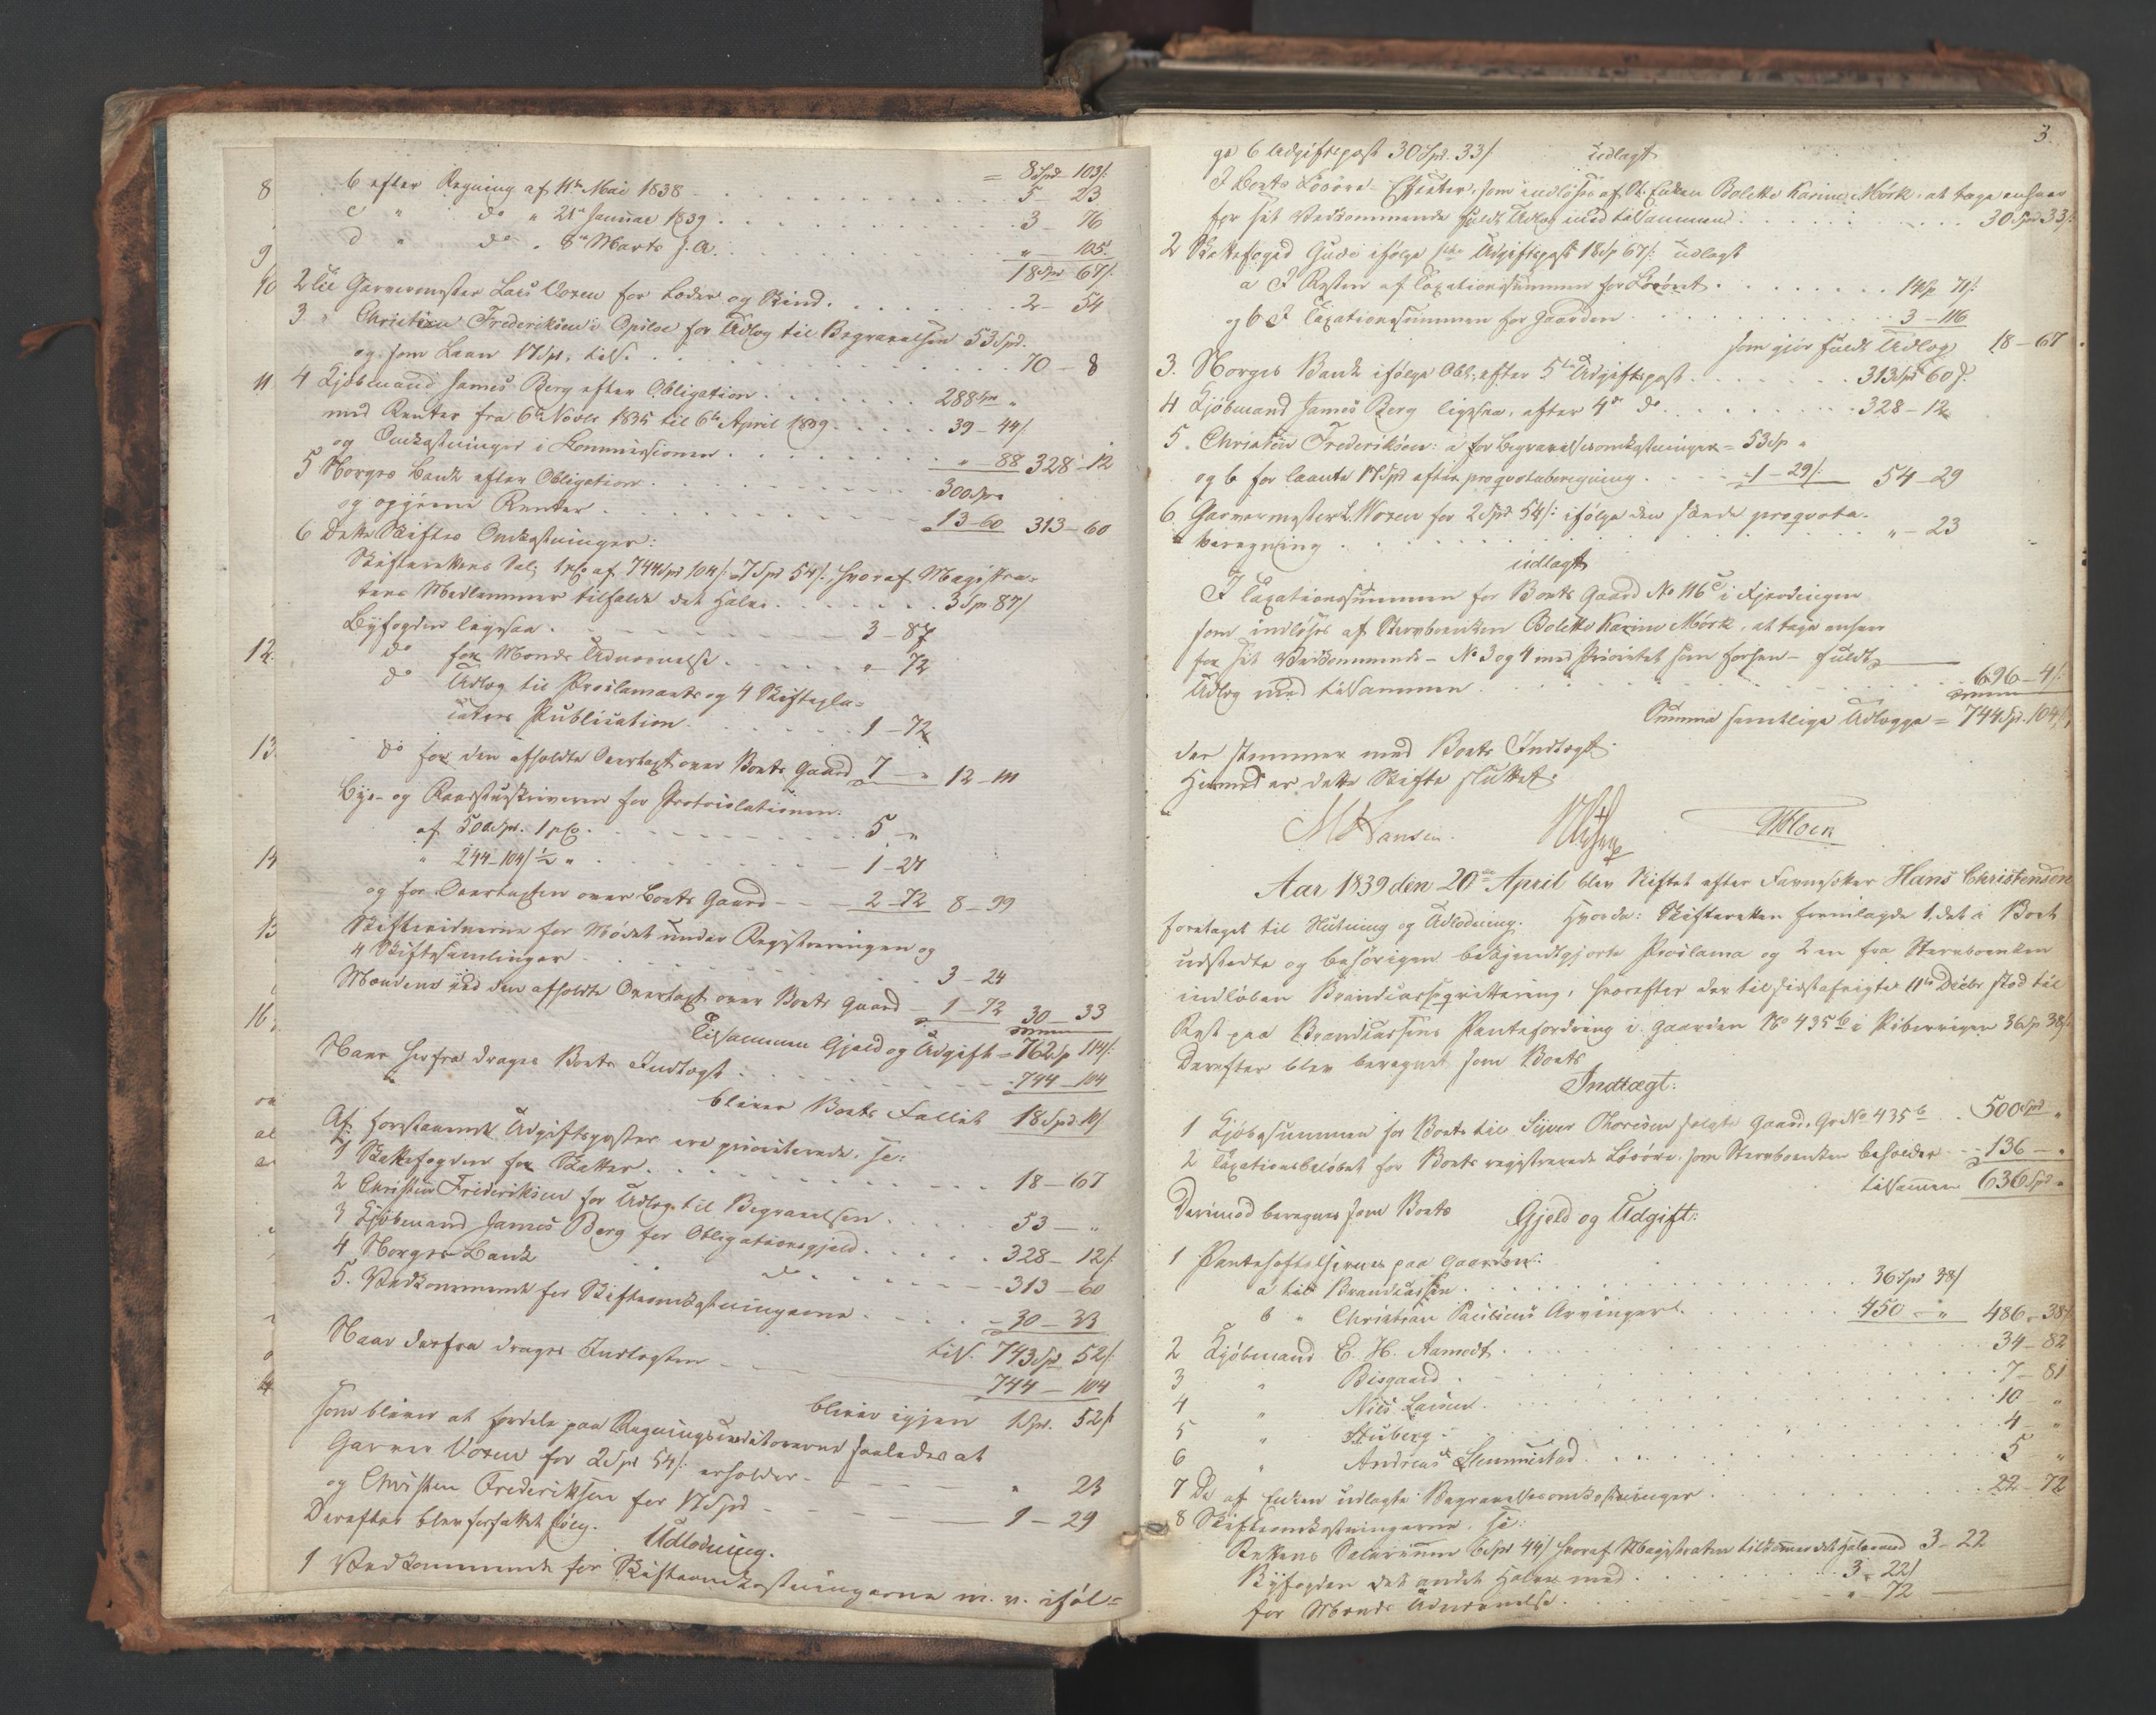 = 8 Spd 103/:
8 b efter Regning af 11te Mai 1838 . . . 5 - 23
c " do " 21de Januar 1839 . . . 3 - 76
9 d " do " 8de Marts s.A. . . . " - 105
18 Spd 67/:
10 2 til Garvermester Lars Voxen for Læder og Skind . . . 2 - 54
3 " Christian Frederiksen i Opsloe for Udlæg til Begravelsen 53 Spd.
og som Laan 17 Spd, tils. . . . 70 - 8
11 4 Kjøbmand James Berg efter Obligation . . . 288 Spd "
med Renter fra 6te Novbr 1835 til 6te April 1839 . . . 39 - 44/:
og Omkostninger i Kommissionen . . . " - 88 328 - 12
5 Norges Bank efter Obligation . . . 300 Spd "
og opgivne Renter . . . 13 - 60 313 - 60
6 Dette Skiftes Omkostninger:
Skifterettens Sal: 1 pC. af 744 Spd 104/: 7 Spd 54/:, hvoraf Magistra-
tens Medlemmer tilfalder det halve . . . 3 Sp 87/
Byfogden ligesaa . . . 3 - 87
12. do for Mænds Udnævnelse . . . " - 72
do Udlæg til Proclamaets og 4 Skiftepla-
caters Publication . . . 1 - 72
13 do for den afholdte Overtaxt over Boets Gaard 7 - " 12 - 111
Bye- og Raadstueskriveren for Protocollationen
af 500 Spd. 1 pC. . . . 5 - "
14 " 244 - 104/ ½ " . . . 1 - 27
og for Overtaxten over Boets Gaard - - - 2 - 72 8 - 99
15 Skiftevidnerne for Mødet under Registreringen og
4 Skiftesamlinger . . . 3 - 24
Mændene ved den afholdte Overtaxt over Boets Gaard - 1 - 72 30 - 33
16 Tilsammen Gjeld og Udgift = 762 Sp 114/:
Naar herfra drages Boets Indtægt . . . 744 - 104
bliver Boets Fallit 18 Spd 10/
Af forestaaende Udgiftsposter ere prioriterede, se:
1 Skattefogden for Skatter . . . 18 - 67
2 Christian Frideriksen for Udlæg til Begravelsen . . . 53 - "
3 Kjøbmand James Berg for Obligationsgjeld . . . 328 - 12/:
4 Norges Bank do . . . 313 - 60
5. Vedkommende for Skifteomkostningerne . . . 30 - 33
tils. 743 Spd 52/:
Naar derfra drages Indtægten . . . 744 - 104
bliver igjen 1 Spd. 52/:
som bliver at fordele paa Regningscreditorerne saaledes at
Garver Voxen for 2 Spd 54/: erholder - - - " 23
og Christen Frederiksen for 17 Spd - - - 1 - 29
Derefter blev forfattet følg. Udlodning.
1 Vedkommende for Skifteomkostningerne m. v. iføl=
3.
ge 6 Udgiftspost 30 Spd. 33/ udlagt
I Boets Løsøre-Effecter, som indløses af Enken Bolette Karine Mørk, at tage enhver
for sit Vedkommende fuldt Udlæg med tilsammen . . . 30 Spd 33/:
2 Skattefoged Gude ifølge 1ste Udgiftspost 18 Sp 67/: udlagt
a I Resten af Taxationssummen for Løsøret . . . 14 Sp 71/:
og b I Taxationssummen for Gaarden . . . 3 - 116
som giør fuldt Udlæg 18 - 67
3. Norges Bank ifølge Obl: efter 5te Udgiftspost . . . 313 Spd 60/:
4 Kjøbmand James Berg ligesaa, efter 4de do . . . 328 - 12
5. Christen Frederiksen: a for Begravelsesomkostninger = 53 Sp "
og b for laante 17 Spd efter proqvotaberegning . . . 1 - 29/: 54 - 29
6 Garvermester L. Woxen for 2 Spd 54/: ifølge den skeede proqvota-
beregning . . . " - 23
udlagt
I Taxationssummen for Boets Gaard No 116 c i Fjerdingen
som indløses af Stervboenken Bolette Karine Mørk, at tage enhver
for sit Vedkommende - No 3 og 4 med Prioritet som forhen - fuldt
Udlæg med tilsammen . . . 696 - 4/:
Summa samtlige Udlægge = 744 Spd. 104/:,
der stemmer med Boets Indtægt.
Hermed er dette Skifte sluttet.
M Hansen.
Aar 1839 den 20de April blev Skiftet efter Hans Christensen
foretaget til Slutning og Udlodning. Hvorda: Skifteretten fremlagde 1, det i Boet
udstedte og behørigen bekjendtgjorte Proclama og 2 en fra Stervboenken
indløben Brandcasseqvittering, hvorefter der til sidstafvigte 11te Decbr stod til
Rest paa Brandcassens Pantefordring i Gaarden No 435 b i Pibervigen 36 Sp 38/:
Derefter blev beregnet som Boets
Indtægt:
1 Kjøbesummen for Boets til Siver Thoresen solgte Gaard, Gr No 435 b . . 500 Spd "
2 Taxationsbeløbet for Boets registrerede Løsøre, som Stervboenken beholder - - 136 - "
tilsammen 636 Spd "
Derimod beregnes som Boets Gjeld og Udgift:
1 Panteheftelserne paa Gaarden:
a til Brandcassen . . . 36 Spd 38/
b " Christian Paulsens Arvinger . . . 450 - " 486 - 38/:
2 Kjøbmand E. H. Aamodt . . . 34 - 82
3 " Bisgaard . . . 7 - 81
4 " Niels Larsen . . . 10 - "
5 " Stuberg . . . 4 - "
6 " Andreas Slemmestad . . . 5 - "
7 De af Enken udlagte Begravelsesomkostninger . . . 22 - 72
8 Skifteomkostningerne, se:
Rettens Salarium 6 Spd 44/ hvoraf Magistraten tilkommer det halve med 3 - 22
Byfogden det andet halve med . . . 3 - 22/
for Mænds Udnævnelse . . . " 72